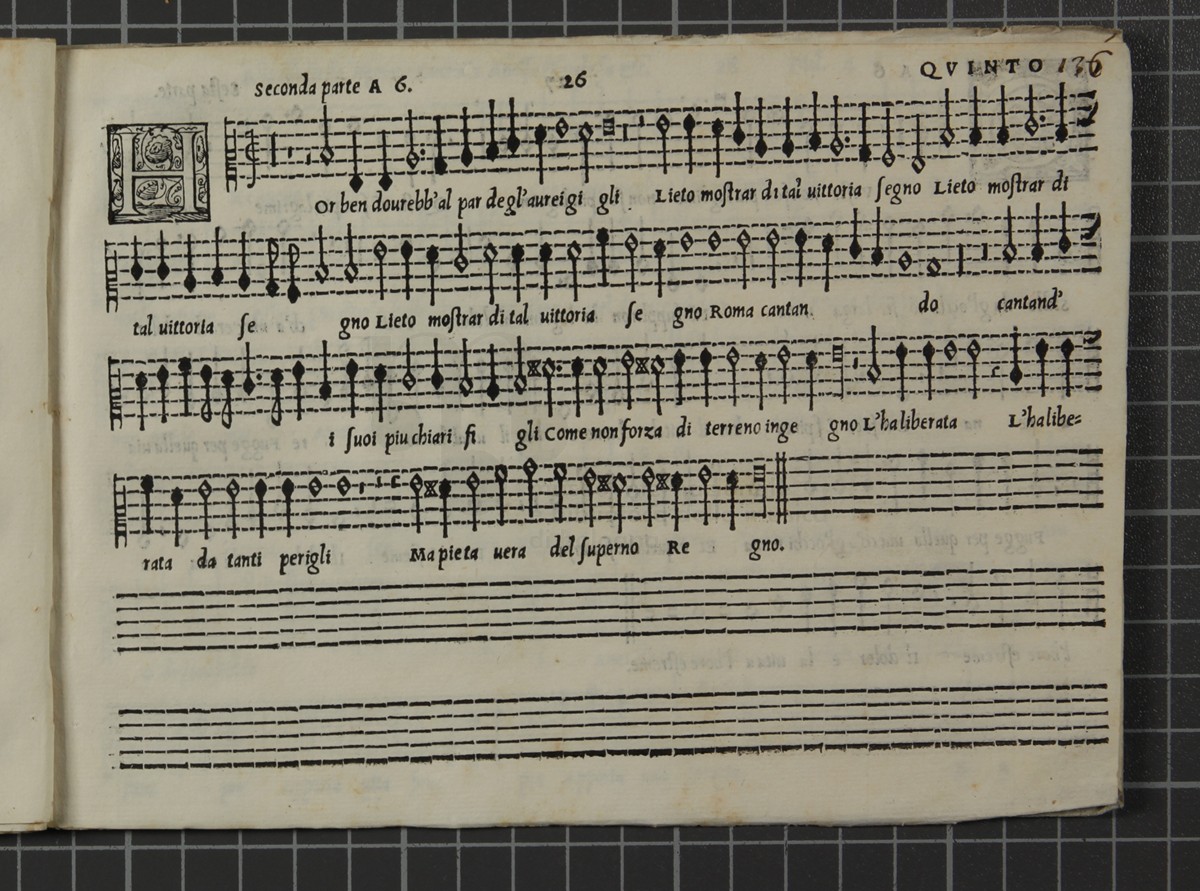 Seconda parte A 6. 26 QVINTO 136
HOr ben dourebb'al par degl'aurei gi gli Lieto moſtrar di tal uittoria ſegno Lieto moſtrar di
tal uittoria ſe gno Lieto moſtrar di tal uittoria ſe gno Roma cantan. do cantand'
i ſuoi piu chiari fi gli Come non forza di terreno inge gno L'ha liberata L'ha libe=
rata da tanti perigli Ma pieta uera del ſuperno Re gno.